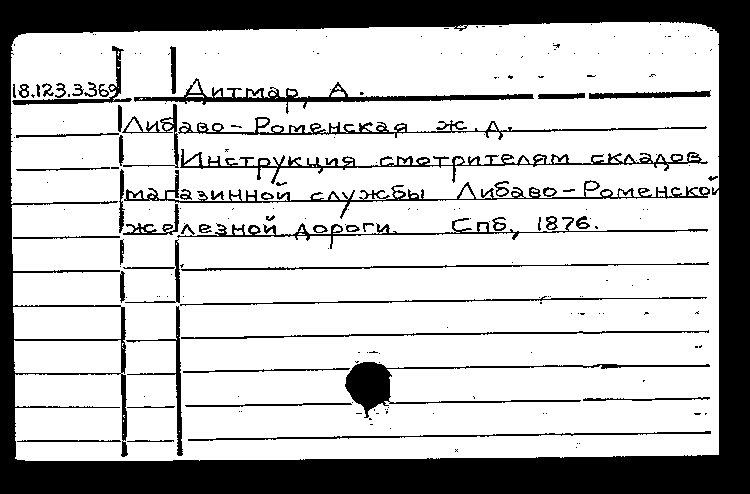 18.123.3.369 Дитмар, А.
Либаво-Роменская ж.д.
Инструкция смотрителям складов
магазинной службы Либаво-Роменской
железной дороги. Спб., 1876.